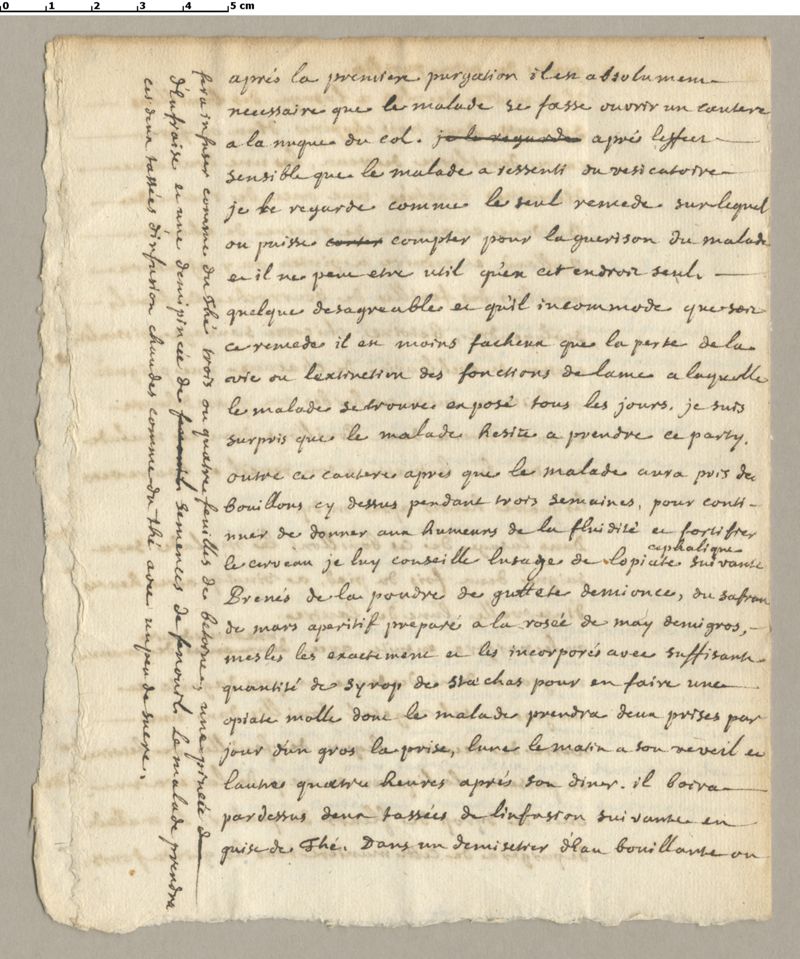 0 1 2 3 4 5 cm
aprés la premiere purgation il est absolument
necessaire que le malade se fasse ouvrir un cautere
a la nuque du col. je le regarde aprés leffect
sensible que le malade a ressenti du vesicatoire
je le regarde comme le seul remede sur lequel
on puisse conter compter pour la guerison du malade
et il ne peut etre util qu'en cet endroit seul.
quelque desagreable et qu'il incommode que soit
ce remede il est moins facheux que la perte de la
vie ou l'extinction des fonctions de lame a laquelle
le malade se trouve exposé tous les jours. je suis
surpris que le malade hesite a prendre ce party.
outre ce cautere apres que le malade aura pris des
bouillons cy dessus pendant trois semaines, pour conti-
nuer de donner aux humeurs de la fluidité et fortifier
le cerveau je luy conseille lusage de lopiate cephalique suivante
Prenés de la poudre de guttete demionce, du safran
de mars aperitif preparé a la rosée de may demi gros,
mesles les exactement et les incorporés avec suffisante
quantité de syrop de stæchas pour en faire une
opiate molle dont le malade prendra deux prises par
jour d'un gros la prise, lune le matin a son reveil et
lautre quatre heures aprés son diner. il boira
par dessus deux tassées de linfusion suivante en
guise de Thé. Dans un demisetier d'eau bouillante on
fera infuser comme du thé trois ou quatre feuilles de betoine, une pincée d
d'Eufraise et une demipincée de semences de fenouil. Le malade prendra
ces deux tassées d'infusion chaudes comme du thé avec un peu de sucre.